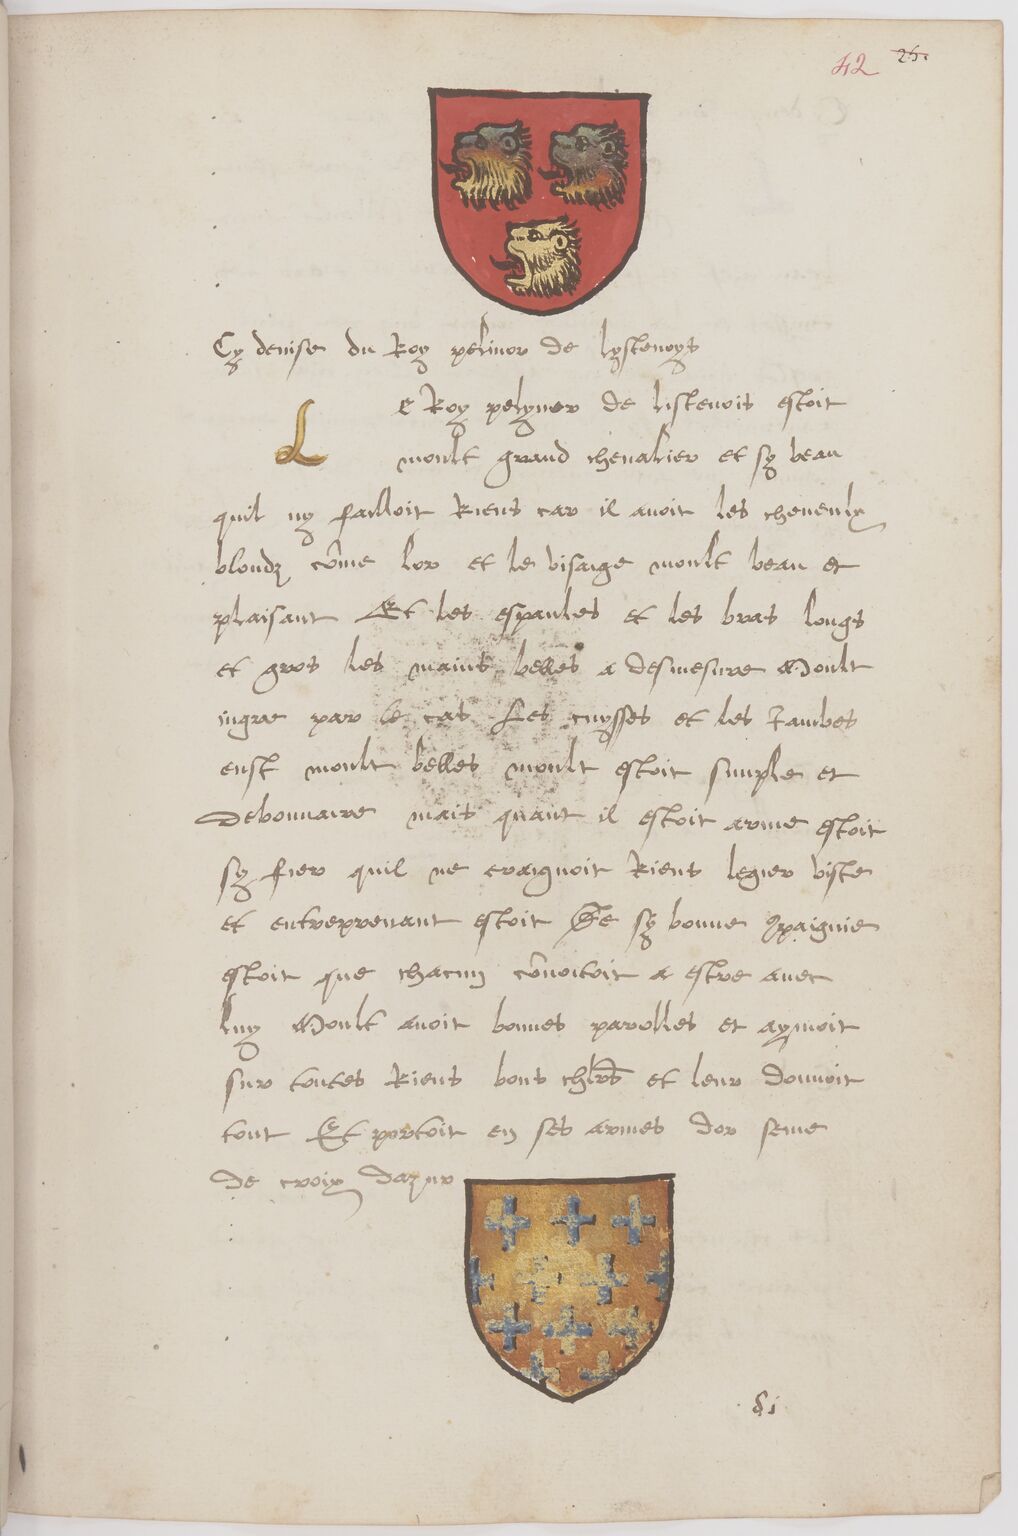 42 26.
Cy denise du Roy pelinor de lystenoys
Le Roy pelynor de listenois estoit
moult grand chenalier et sy beau
quil ny failloit Riens car il auoit les cheueulx
blondz cõme lor et le visaige moult beau et
plaisant Et les espaules et les bras longs
et gros les mains belles a desmesure Moult
ingre par le cas Les cuysses et les Jambes
eust moult belles moult estoit simple et
debonnaire mais quant il estoit arme estoit
sy fier quil ne craignoit Riens legier viste
et entreprenant estoit De sy bonne ꝯpaignie
estoit que chacun cõuoitoit a estre auec
luy Moult auoit bonnes parolles et aymoit
sur toutes Riens bons chlrs et leur donnoit
tout Et portoit en ses armes dor seme
de croix dazur